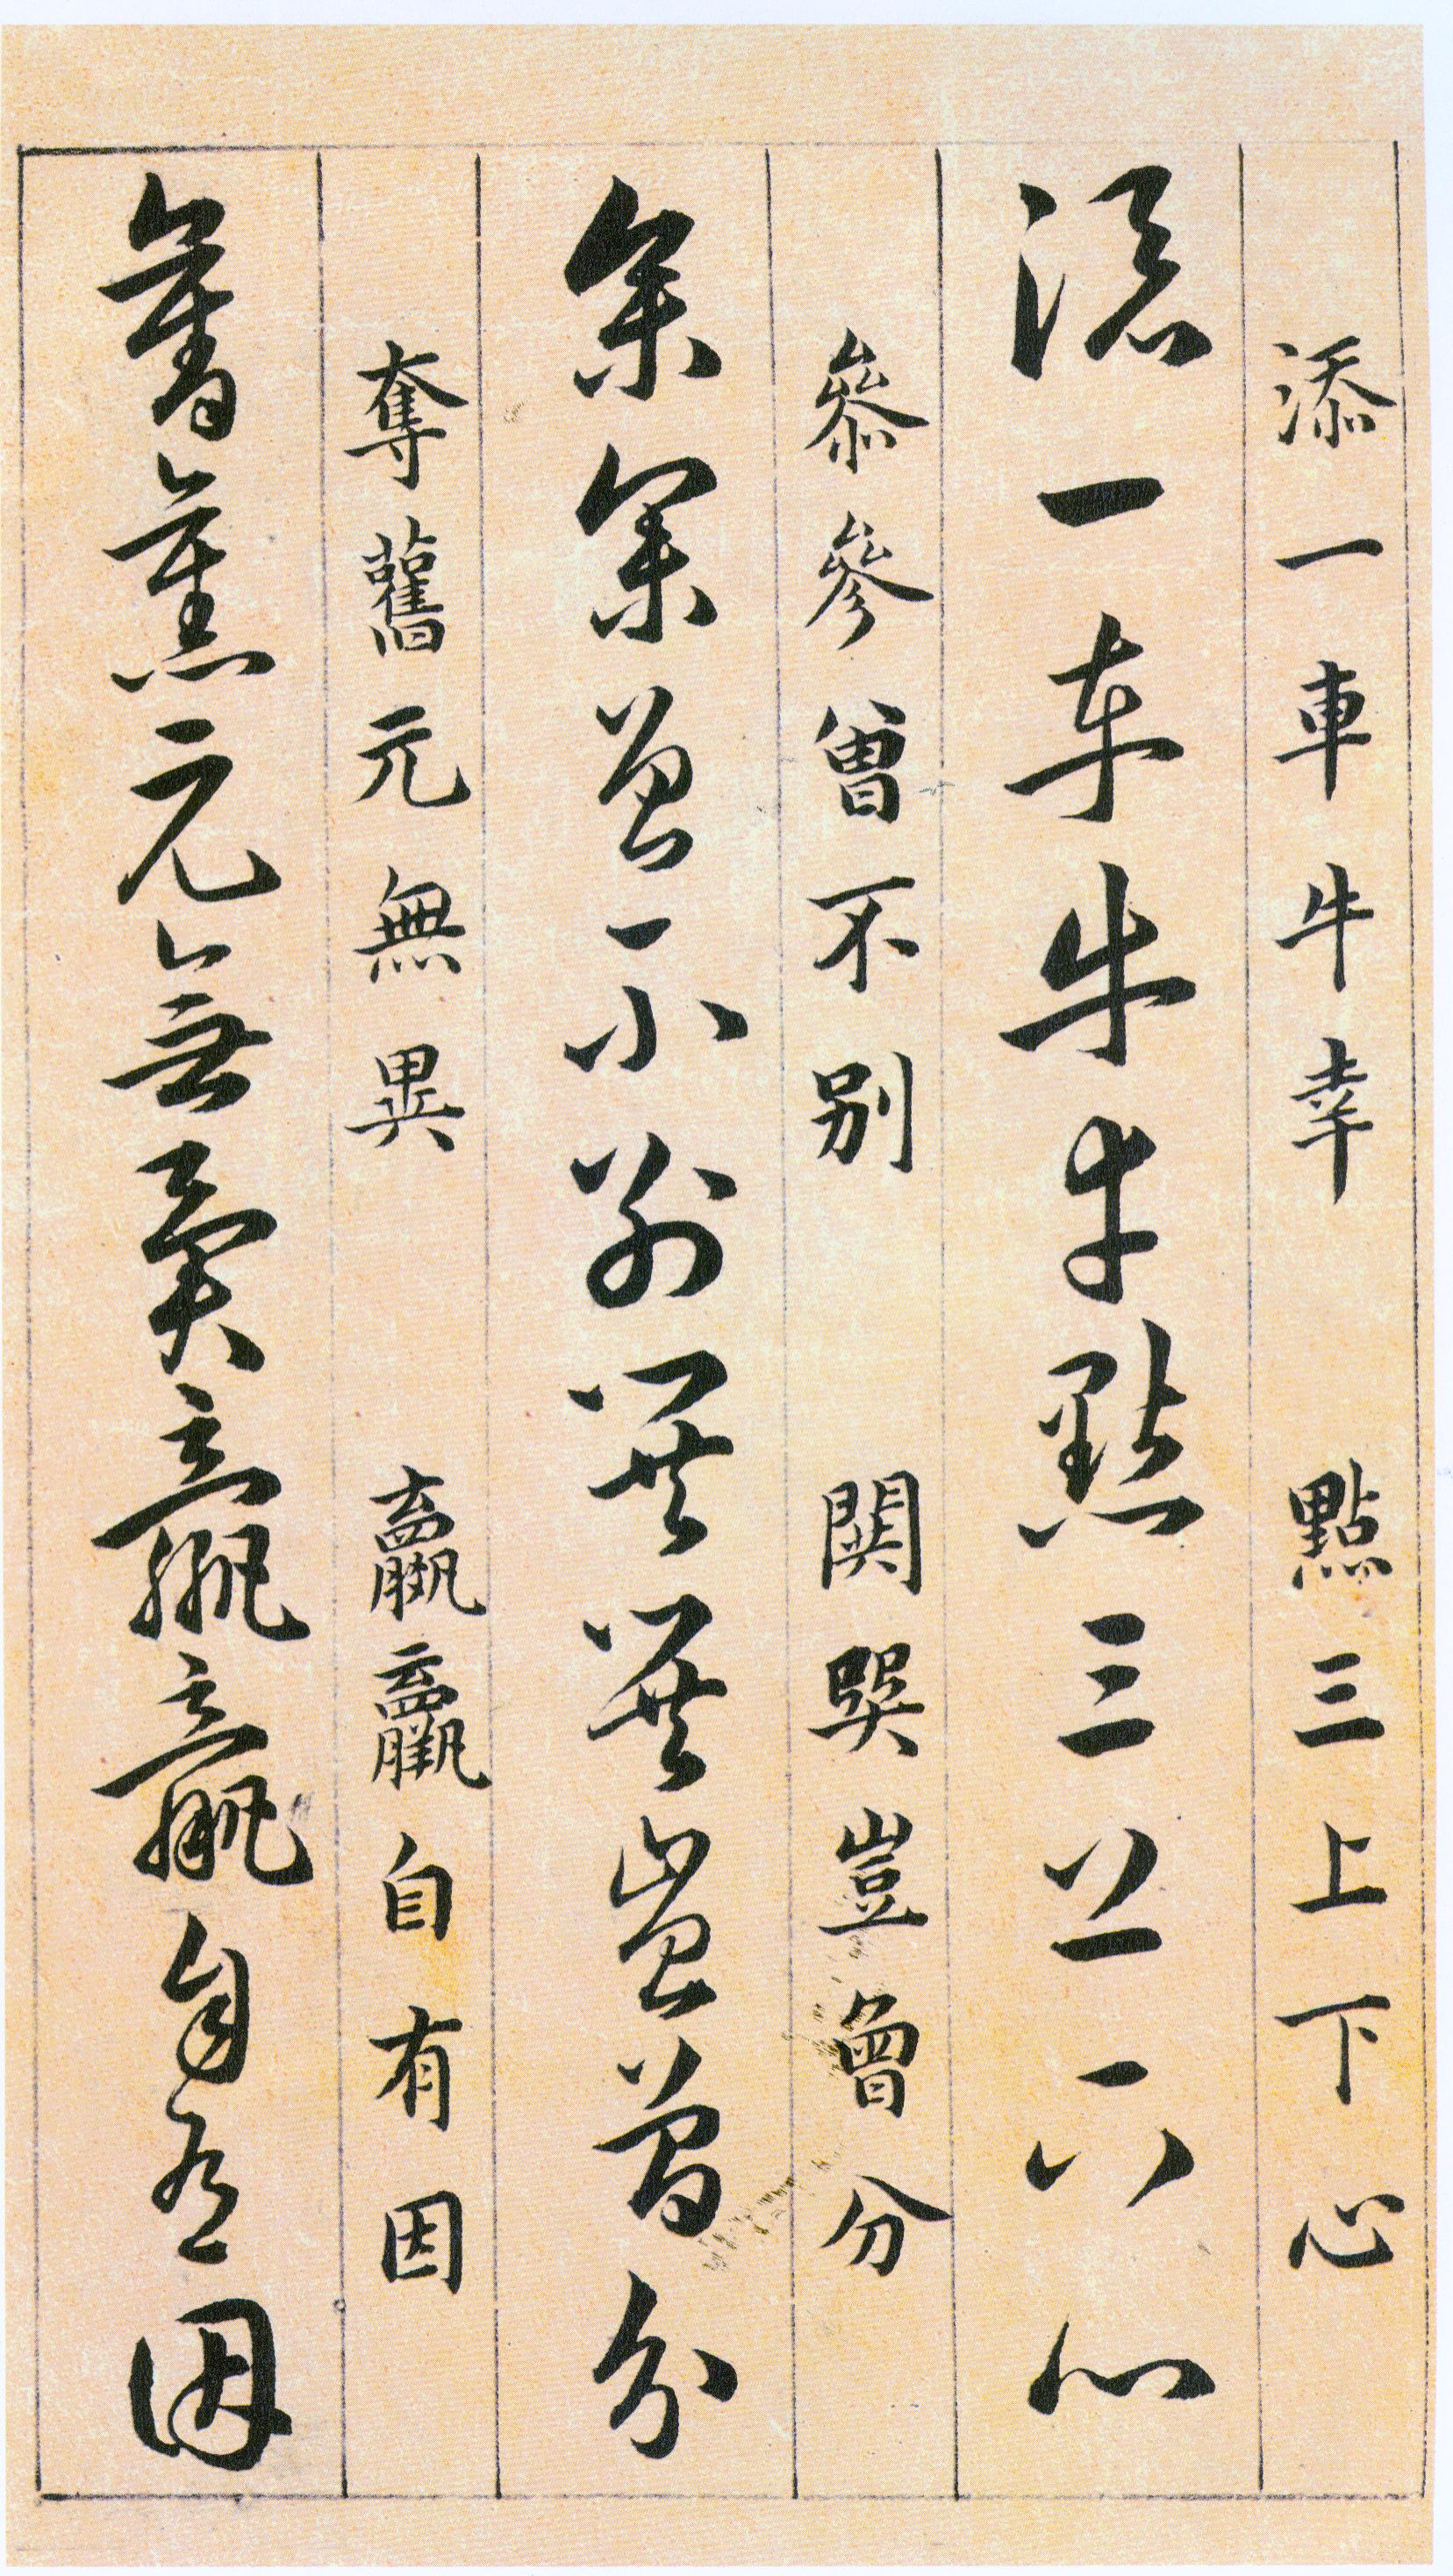 添一車牛幸 點三上下心
添一車牛幸點三上下心
叅參曾不別 閧哭豈曾分
叅參曾不別閧哭豈曾分
奪舊元無異 羸自有因
奪舊元無異羸自有因